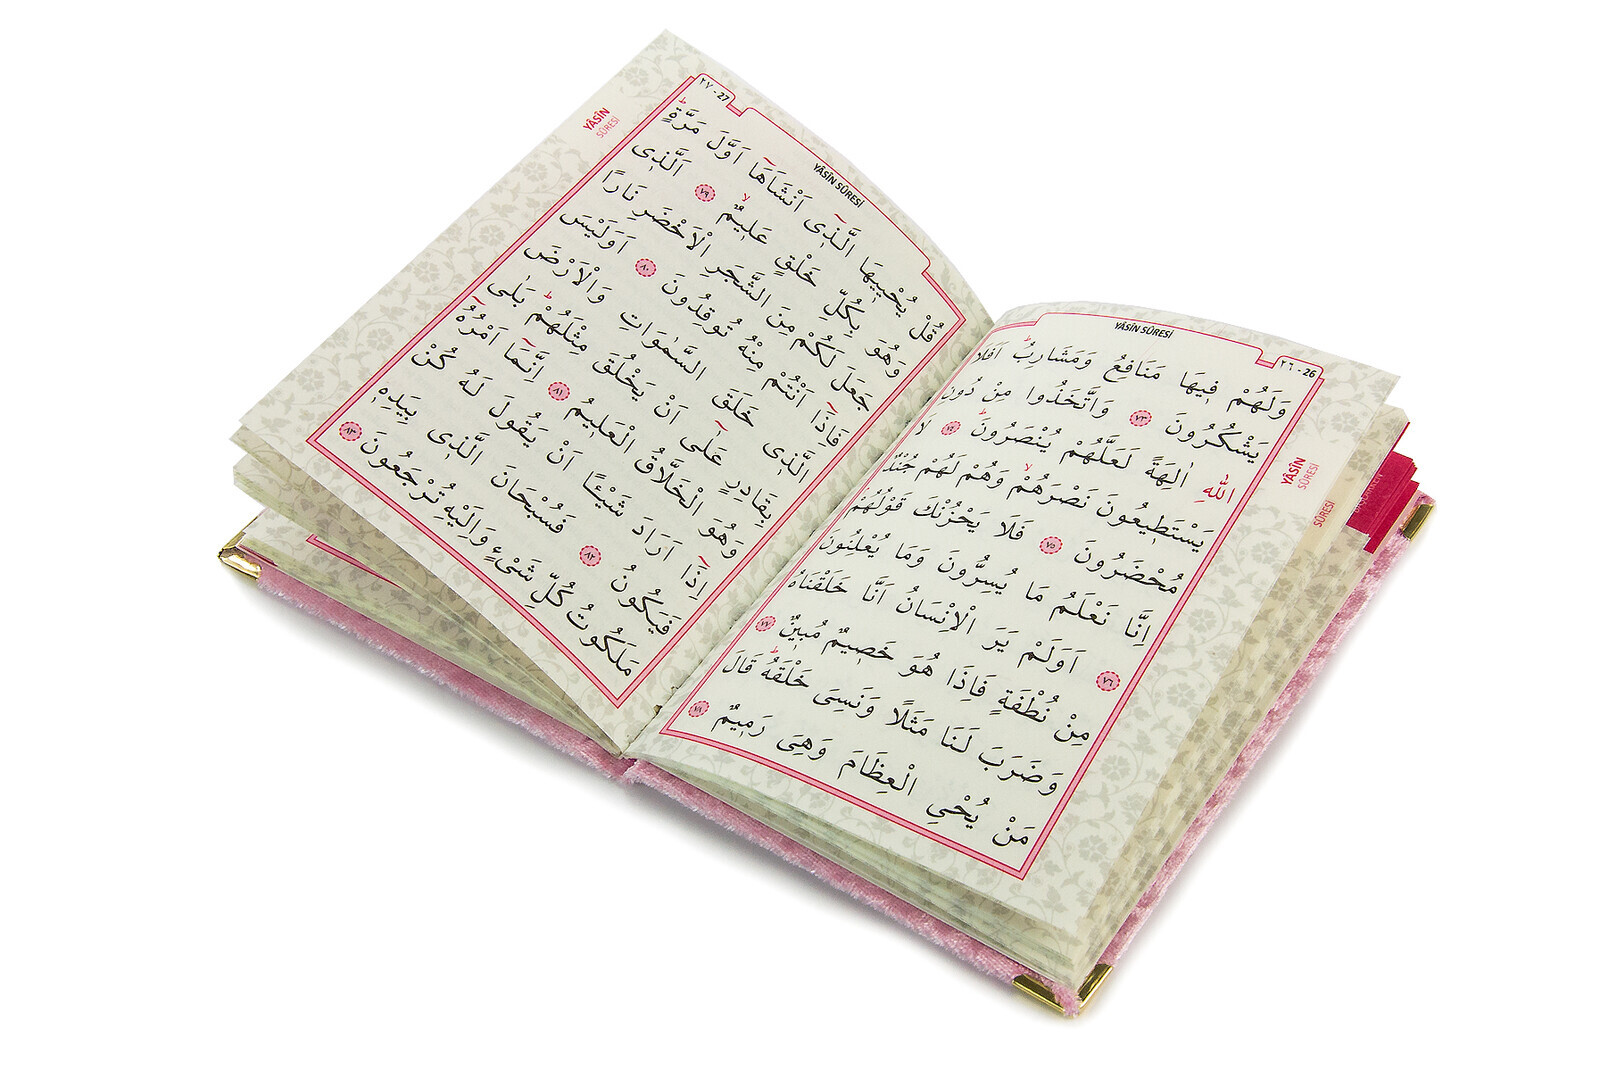 YÂSÎN SÛRESİ
٢٦ - 26
وَلَهُمْ فِيهَا مَنَافِعُ وَمَشَارِبُ اَفَلَا
يَشْكُرُونَ ٧٣ وَاتَّخَذُوا مِنْ دُونِ
اللّٰهِ اٰلِهَةً لَعَلَّهُمْ يُنْصَرُونَ ٧٤ لَا
يَسْتَطٖيعُونَ نَصْرَهُمْ وَهُمْ لَهُمْ جُنْدٌ
مُحْضَرُونَ ٧٥ فَلَا يَحْزُنْكَ قَوْلُهُمْ
اِنَّا نَعْلَمُ مَا يُسِرُّونَ وَمَا يُعْلِنُونَ
٧٦ اَوَلَمْ يَرَ الْاِنْسَانُ اَنَّا خَلَقْنَاهُ
مِنْ نُطْفَةٍ فَاِذَا هُوَ خَصٖيمٌ مُبٖينٌ ٧٧
وَضَرَبَ لَنَا مَثَلًا وَنَسِىَ خَلْقَهُ قَالَ
مَنْ يُحْيِ الْعِظَامَ وَهِىَ رَمٖيمٌ ٧٨
YÂSÎN
SÛRESİ
SÛRESİ
YÂSÎN SÛRESİ
٢٧ - 27
قُلْ يُحْيٖيهَا الَّذٖى اَنْشَاَهَا اَوَّلَ مَرَّةٍ
وَهُوَ بِكُلِّ خَلْقٍ عَلٖيمٌ ٧٩ اَلَّذٖى
جَعَلَ لَكُمْ مِنَ الشَّجَرِ الْاَخْضَرِ نَارًا
فَاِذَا اَنْتُمْ مِنْهُ تُوقِدُونَ ٨٠ اَوَلَيْسَ
الَّذٖى خَلَقَ السَّمٰوَاتِ وَالْاَرْضَ
بِقَادِرٍ عَلٰى اَنْ يَخْلُقَ مِثْلَهُمْ بَلٰى
وَهُوَ الْخَلَّاقُ الْعَلٖيمُ ٨١ اِنَّمَا اَمْرُهُ
اِذَا اَرَادَ شَيْئًا اَنْ يَقُولَ لَهُ كُنْ
فَيَكُونُ ٨٢ فَسُبْحَانَ الَّذٖى بِيَدِهٖ
مَلَكُوتُ كُلِّ شَىْءٍ وَاِلَيْهِ تُرْجَعُونَ ٨٣
YÂSÎN
SÛRESİ